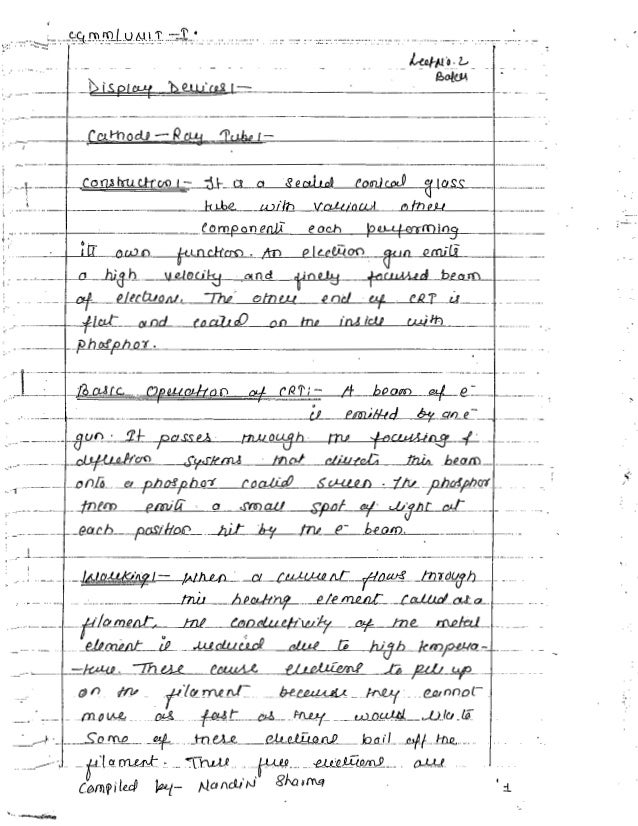 CGMM/UNIT-I.
Lect No. 2
Display Devices:-
Cathode-Ray Tube:-
Construction:- It is a sealed conical glass
tube with various other
components each performing
its own function. An election gun emits
a high velocity and finely focussed beam
of electrons. The other end of CRT is
flat and coated on the inside with
phosphor.
Basic Operation of CRT:- A beam of e⁻
is emitted by an e⁻
gun. It passes through the focusing &
deflection systems that directs this beam
onto a phosphor coated screen. The phosphor
then emits a small spot of light at
each position hit by the e⁻ beam.
Working:- When a current flows through
this heating element called as a
filament, the conductivity of the metal
element is reduced due to high tempera-
-ture. These cause electrons to pile up
on the filament because they cannot
move as fast as they would like to
Some of these electrons boil off the
filament. These free electrons are
Compiled by- Nandini Sharma
1